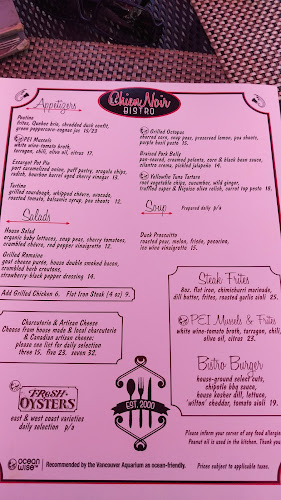 Chien Noir
BISTRO
Appetizers
Poutine
frites, Quebec brie, shredded duck confit,
green peppercorn-cognac jus 15/23
PEI Mussels
white wine-tomato broth,
tarragon, chili, olive oil, citrus 17.
Escargot Pot Pie
port caramelized onion, puff pastry, arugula chips,
radish, bourbon barrel aged cherry vinegar 19.
Tartine
grilled sourdough, whipped chèvre, avocado,
roasted tomato, balsamic syrup, pea shoots 12.
Grilled Octopus
charred corn, snap peas, preserved lemon, pea shoots,
purple basil pesto 19.
Braised Pork Belly
pan-seared, creamed polenta, corn & black bean sauce,
cilantro crema, pickled jalapeño 14.
Yellowfin Tuna Tartare
diced vegetable chips, cucumber, wild ginger,
truffled caper & Niçoise olive relish, carrot top pesto 18.
Salads
House Salad
organic baby lettuces, snap peas, cherry tomatoes,
crumbled chèvre, red pepper vinaigrette 12.
Grilled Romaine
goat cheese purée, house double smoked bacon,
crumbled herb croutons,
strawberry-black pepper dressing 14.
Add Grilled Chicken 6. Flat Iron Steak (4 oz) 9.
Soup Prepared daily p/a
Duck Prosciutto
roasted pear, melon, frisée, pecorino,
ice wine vinaigrette 15.
Charcuterie & Artisan Cheese
Cheese from house made & local charcuterie
& Canadian artisan cheese;
please see list for daily selection
three 15. five 23. seven 32.
FRESH
OYSTERS
east & west coast varieties
daily selection p/a
EST. 2000
Steak Frites
8oz. flat iron, chimichurri marinade,
dill butter, frites, roasted garlic aioli 25.
PEI Mussels & Frites
white wine-tomato broth, tarragon, chili,
olive oil, citrus 23.
Bistro Burger
house-ground select cuts,
chipotle bbq sauce,
house kosher dill, lettuce,
'wilton' cheddar, tomato aioli 19.
Please inform your server of any food allergies
Peanut oil is used in the kitchen. Thank you
ocean
wise
Recommended by the Vancouver Aquarium as ocean-friendly.
Prices subject to applicable taxes.